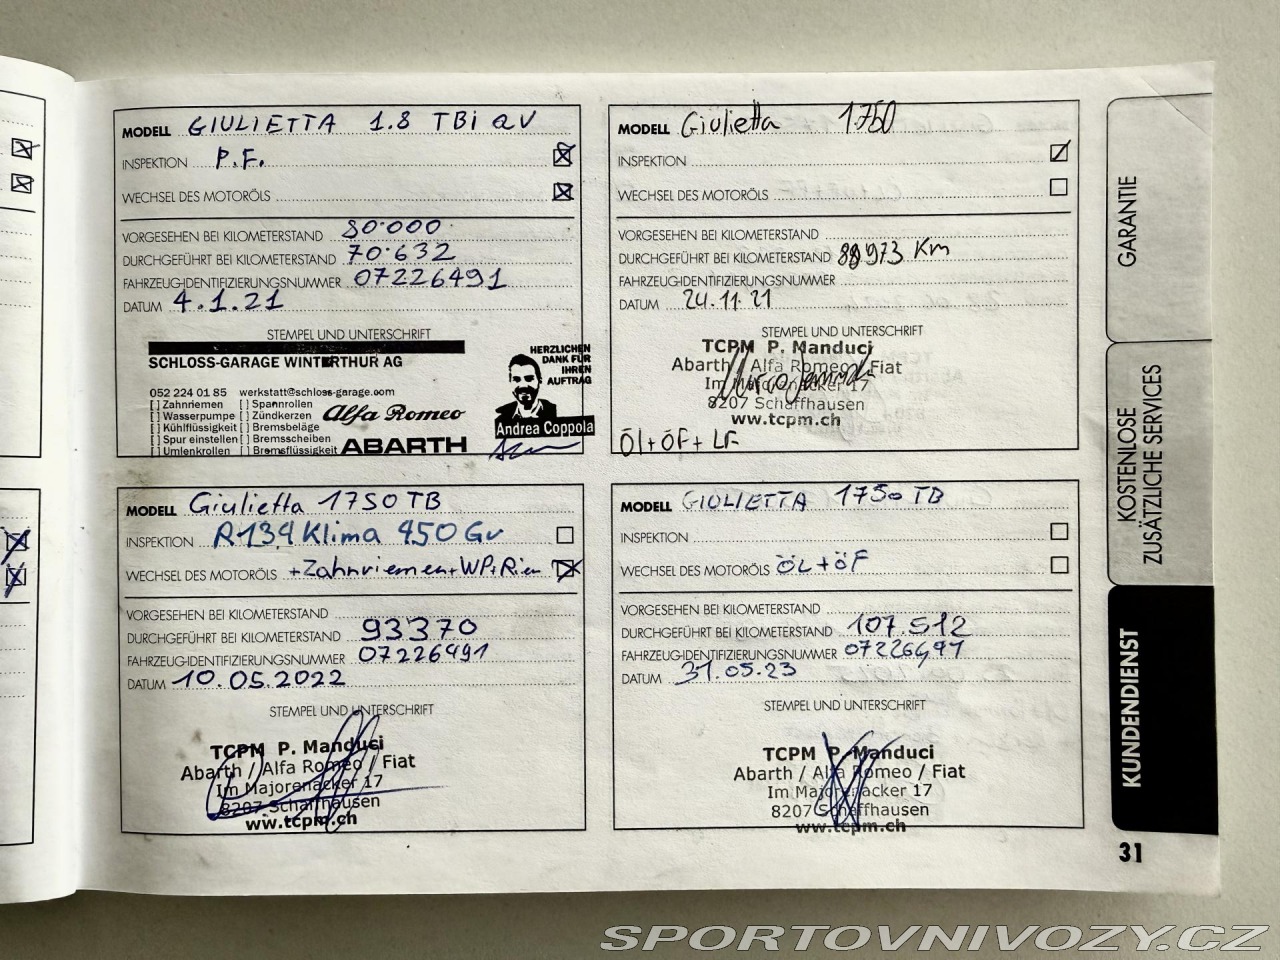 MODELL GIULIETTA 1.8 TBi QV
INSPEKTION P.F.
WECHSEL DES MOTORÖLS
VORGESEHEN BEI KILOMETERSTAND 80.000
DURCHGEFÜHRT BEI KILOMETERSTAND 70.632
FAHRZEUG-IDENTIFIZIERUNGSNUMMER 07226491
DATUM 4.1.21
STEMPEL UND UNTERSCHRIFT
SCHLOSS-GARAGE WINTERTHUR AG
052 224 01 85 werkstatt@schloss-garage.com
[ ] Zahnriemen [ ] Spannrollen
[ ] Wasserpumpe [ ] Zündkerzen
[ ] Kühlflüssigkeit [ ] Bremsbeläge
[ ] Spur einstellen [ ] Bremsscheiben
[ ] Umlenkrollen [ ] Bremsflüssigkeit
Alfa Romeo
ABARTH
HERZLICHEN
DANK FÜR
IHREN
AUFTRAG
Andrea Coppola
MODELL Giulietta 1750
INSPEKTION
WECHSEL DES MOTORÖLS
VORGESEHEN BEI KILOMETERSTAND
DURCHGEFÜHRT BEI KILOMETERSTAND 88973 Km
FAHRZEUG-IDENTIFIZIERUNGSNUMMER
DATUM 24.11.21
STEMPEL UND UNTERSCHRIFT
TCPM P. Manduci
Abarth / Alfa Romeo / Fiat
Im Majorenacker 17
8207 Schaffhausen
www.tcpm.ch
ÖL+ÖF+LF
MODELL Giulietta 1750 TB
INSPEKTION R134 Klima 450 Gr
WECHSEL DES MOTORÖLS +Zahnriemen+WP+Riem
VORGESEHEN BEI KILOMETERSTAND
DURCHGEFÜHRT BEI KILOMETERSTAND 93370
FAHRZEUG-IDENTIFIZIERUNGSNUMMER 07226491
DATUM 10.05.2022
STEMPEL UND UNTERSCHRIFT
TCPM P. Manduci
Abarth / Alfa Romeo / Fiat
Im Majorenacker 17
8207 Schaffhausen
www.tcpm.ch
MODELL GIULIETTA 1750 TB
INSPEKTION
WECHSEL DES MOTORÖLS ÖL+ÖF
VORGESEHEN BEI KILOMETERSTAND
DURCHGEFÜHRT BEI KILOMETERSTAND 107.512
FAHRZEUG-IDENTIFIZIERUNGSNUMMER 07226491
DATUM 31.05.23
STEMPEL UND UNTERSCHRIFT
TCPM P. Manduci
Abarth / Alfa Romeo / Fiat
Im Majorenacker 17
8207 Schaffhausen
www.tcpm.ch
GARANTIE
KOSTENLOSE
ZUSÄTZLICHE SERVICES
KUNDENDIENST
31
SPORTOVNIVOZY.CZ